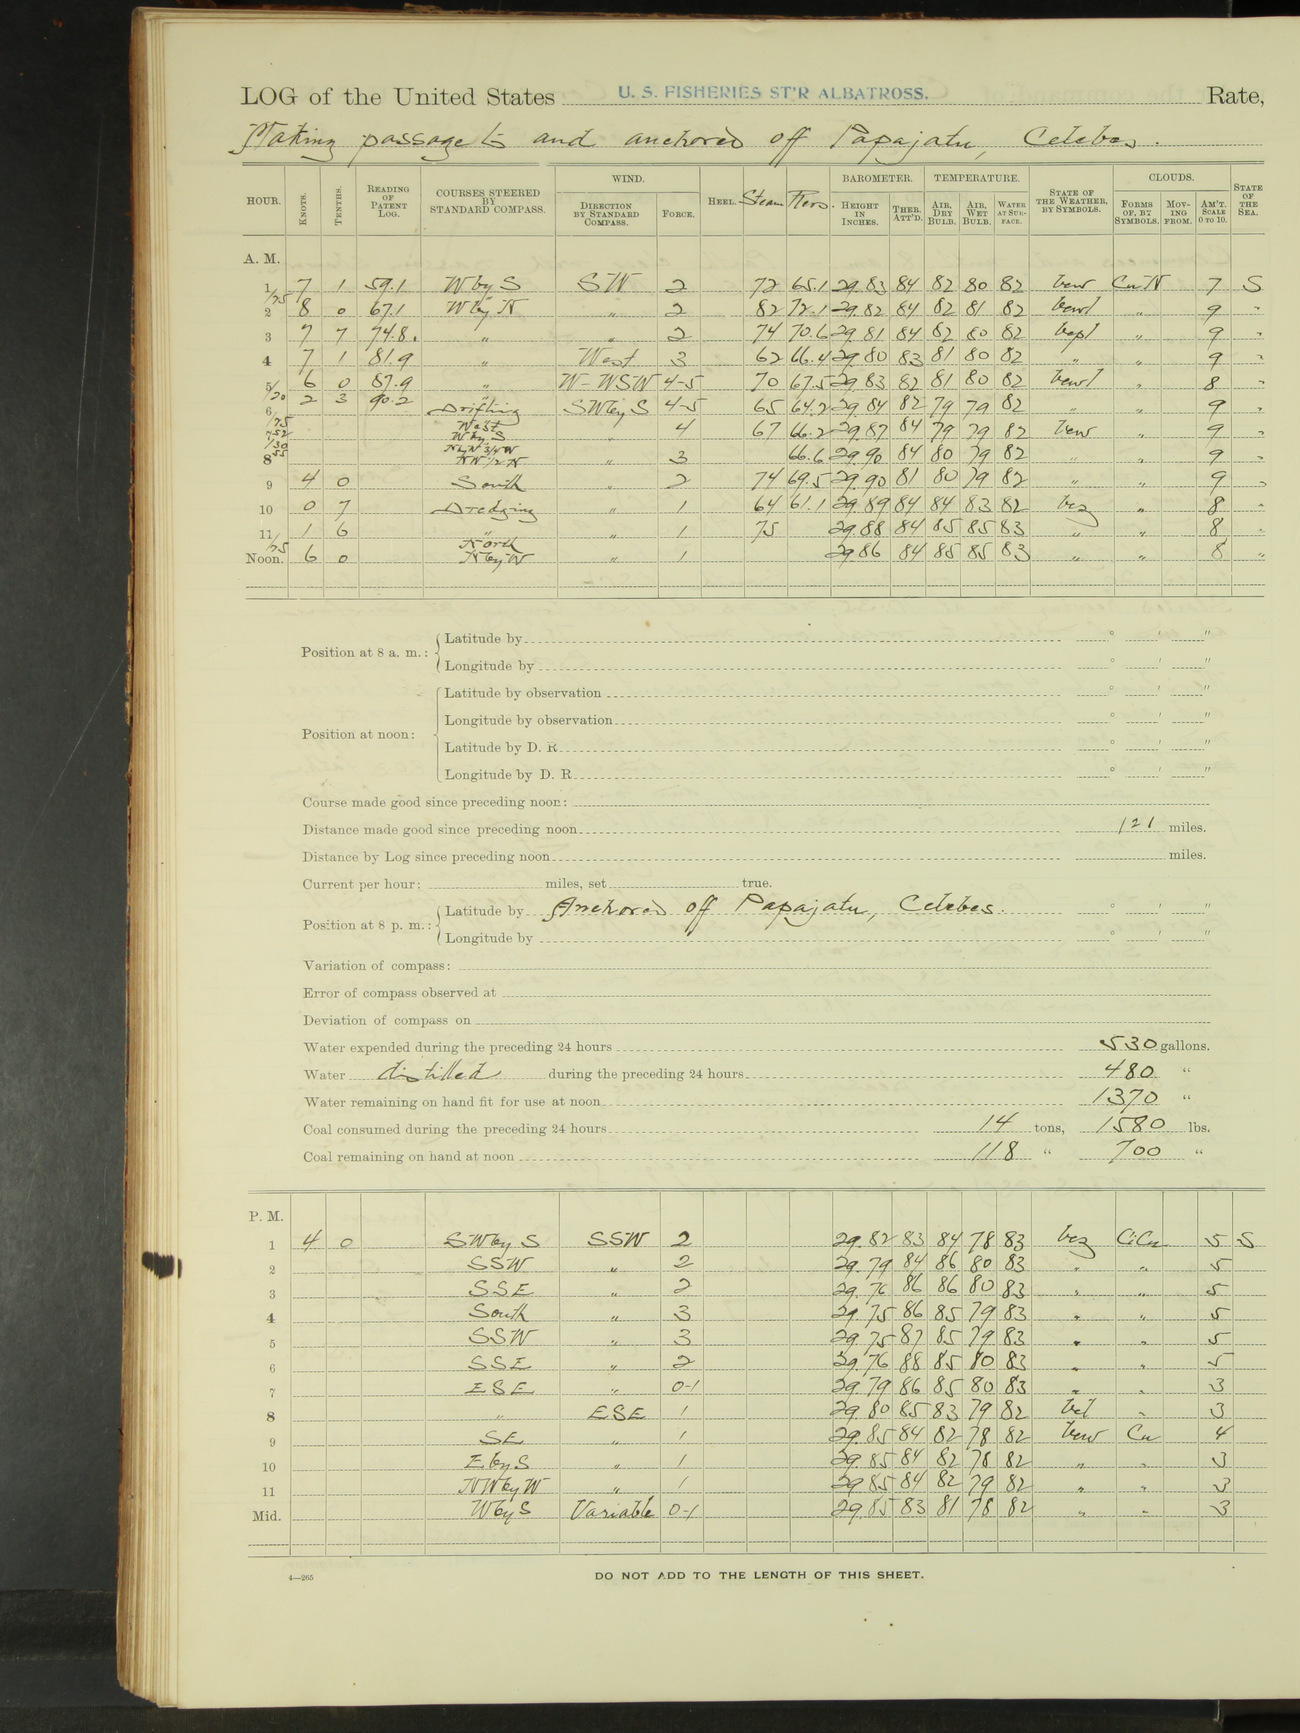 LOG of the United States U. S. FISHERIES ST'R ALBATROSS. Rate,
Making passage to and anchored off Papajatu, Celebes.
HOUR. KNOTS. TENTHS. READING OF PATENT LOG. COURSES STEERED BY STANDARD COMPASS. WIND. DIRECTION BY STANDARD COMPASS. FORCE. HEEL. Steam Revs. BAROMETER. HEIGHT IN INCHES. THER. ATT'D. TEMPERATURE. AIR, DRY BULB. AIR, WET BULB. WATER AT SURFACE. STATE OF THE WEATHER, BY SYMBOLS. CLOUDS. FORMS OF, BY SYMBOLS. MOVING FROM. AM'T. SCALE 0 TO 10. STATE OF THE SEA.
A. M.
1 7 1 59.1 W by S SW 2 72 65.1 29.83 84 82 80 82 Cu N 7 S
2 8 0 67.1 W by N " 2 82 72.1 29.82 84 82 81 82 " 9 "
3 7 7 74.8 " " 2 74 70.6 29.81 84 82 80 82 " 9 "
4 7 1 81.9 " West 3 62 66.4 29.80 83 81 80 82 " " 9 "
5 6 0 87.9 " W-WSW 4-5 70 67.5 29.83 82 81 80 82 " 8 "
6 2 3 90.2 Drifting SW by S 4-5 65 64.2 29.84 82 79 79 82 " " 9 "
West W by S " 4 67 66.2 29.87 84 79 79 82 " 9 "
8 NW 1/2 N " 3 66.6 29.90 84 80 79 82 " " 9 "
9 4 0 South " 2 74 69.5 29.90 81 80 79 82 " " 9 "
10 0 7 Dredging " 1 64 61.1 29.89 84 84 83 82 bcz " 8 "
11 1 6 " " 1 75 29.88 84 85 85 83 " " 8 "
North
Noon. 6 0 N by W " 1 29.86 84 85 85 83 " " 8 "
Position at 8 a. m.: Latitude by ° ' "
Longitude by ° ' "
Position at noon: Latitude by observation ° ' "
Longitude by observation ° ' "
Latitude by D. R. ° ' "
Longitude by D. R. ° ' "
Course made good since preceding noon:
Distance made good since preceding noon 121 miles.
Distance by Log since preceding noon miles.
Current per hour: miles, set true.
Position at 8 p. m.: Latitude by Anchored off Papajatu, Celebes. ° ' "
Longitude by ° ' "
Variation of compass:
Error of compass observed at
Deviation of compass on
Water expended during the preceding 24 hours 530 gallons.
Water distilled during the preceding 24 hours 480 "
Water remaining on hand fit for use at noon 1370 "
Coal consumed during the preceding 24 hours 14 tons, 1580 lbs.
Coal remaining on hand at noon 118 " 700 "
P. M.
1 4 0 SW by S SSW 2 29.82 83 84 78 83 bcz Ci Cu 5 S
2 SSW " 2 29.79 84 86 80 83 " " 5
3 SSE " 2 29.76 86 86 80 83 " " 5
4 South " 3 29.75 86 85 79 83 " " 5
5 SSW " 3 29.75 87 85 79 83 " " 5
6 SSE " 2 29.76 88 85 80 83 " " 5
7 ESE " 0-1 29.79 86 85 80 83 " " 3
8 " ESE 1 29.80 85 83 79 82 bcl " 3
9 SE " 1 29.85 84 82 78 82 Cu 4
10 E by S " 1 29.85 84 82 78 82 " " 3
11 NW by W " 1 29.85 84 82 79 82 " " 3
Mid. W by S Variable 0-1 29.85 83 81 78 82 " " 3
4—265 DO NOT ADD TO THE LENGTH OF THIS SHEET.